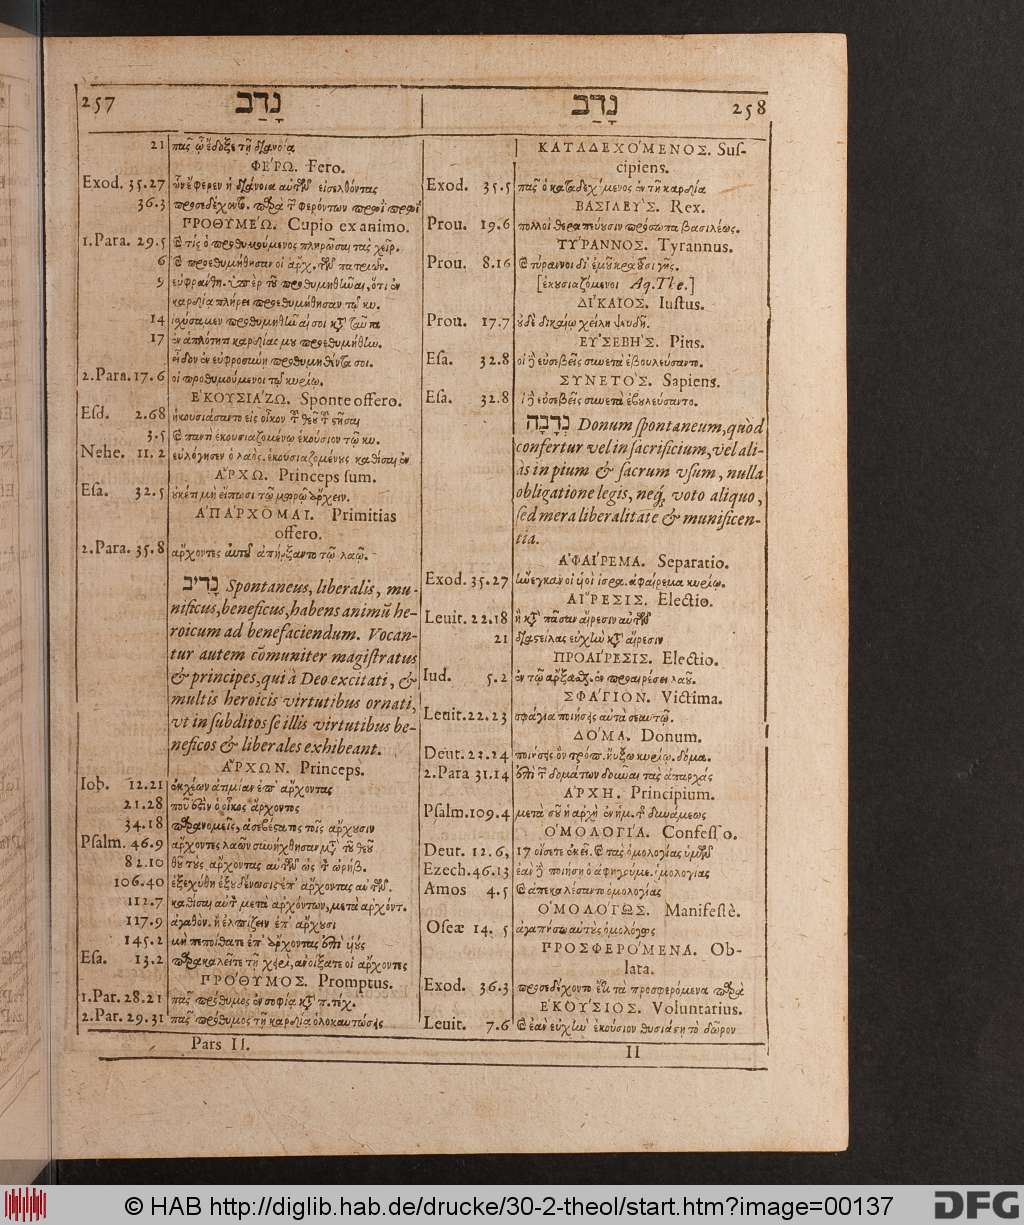 257 נָדַב
21 πᾶς ᾧ ἔδοξε τῇ διανοίᾳ
ΦΕΡΩ. Fero.
Exod. 35.27 ὧν ἔφερεν ἡ διάνοια αὐτῶν εἰσελθόντας
36.3 προσεδέχοντο. παρὰ τ φερόντων πρωῒ πρωῒ
ΠΡΟΘΥΜΕΩ. Cupio ex animo.
1.Para. 29.5 καὶ τίς ὁ προθυμούμενος πληρῶσαι τὰς χεῖρ.
6 καὶ προεθυμήθησαν οἱ ἄρχ. τῶν πατριῶν.
9 εὐφράνθη. ὑπὲρ τοῦ προθυμηθῆναι, ὅτι ἐν
καρδίᾳ πλήρει προεθυμήθησαν τῷ κυ.
14 ἰσχύσαμεν προθυμηθῆναί σοι κτ ταῦτα
17 ἐν ἁπλότητι καρδίας μου προεθυμήθην.
εἶδον ἐν εὐφροσύνῃ προθυμηθέντα σοι.
2.Para. 17.6 οἱ προθυμούμενοι τῷ κυρίῳ.
ΕΚΟΥΣΙΑΖΩ. Sponte offero.
Esd. 2.68 ἡκουσιάσαντο εἰς οἶκον τ θεοῦ τ στῆσαι
3.5 καὶ παντὶ ἑκουσιαζομένῳ ἑκούσιον τῷ κυ.
Nehe. 11.2 εὐλόγησεν ὁ λαὸς. ἑκουσιαζομένους καθίσαι ἐν
ΑΡΧΩ. Princeps sum.
Esa. 32.5 οὐκέτι μὴ εἴπωσι τῷ μωρῷ ἄρχειν.
ΑΠΑΡΧΟΜΑΙ. Primitias
offero.
2.Para. 35.8 ἄρχοντες αὐτοῦ ἀπήρξαντο τῷ λαῷ.
נָדִיב Spontaneus, liberalis, mu-
nificus, beneficus, habens animũ he-
roicum ad benefaciendum. Vocan-
tur autem cõmuniter magistratus
& principes, qui à Deo excitati, &
multis heroicis virtutibus ornati,
vt in subditos se illis virtutibus be-
neficos & liberales exhibeant.
ΑΡΧΩΝ. Princeps.
Iob. 12.21 ἐκχέων ἀτιμίαν ἐπ' ἄρχοντας
21.28 ποῦ ἐστιν ὁ οἶκος ἄρχοντος
34.18 παρανομεῖς, ἀσεβέστατος τοῖς ἄρχουσιν
Psalm. 46.9 ἄρχοντες λαῶν συνήχθησαν μτ τοῦ θεοῦ
82.10 θοῦ τοὺς ἄρχοντας αὐτῶν ὡς τ ὠρήβ.
106.40 ἐξεχύθη ἐξουδένωσις ἐπ' ἄρχοντας αὐτῶν.
112.7 καθίσαι αὐτ μετὰ ἀρχόντων, μετὰ ἀρχόντ.
117.9 ἀγαθὸν. ἢ ἐλπίζειν ἐπ' ἄρχουσι
145.2 μὴ πεποίθατε ἐπ' ἄρχοντας ἐπὶ υἱοὺς
Esa. 13.2 παρακαλεῖτε τῇ χειρὶ, ἀνοίξατε οἱ ἄρχοντες
ΠΡΟΘΥΜΟΣ. Promptus.
1.Par. 28.21 πᾶς πρόθυμος ἐν σοφίᾳ κτ π. τέχ.
2.Par. 29.31 πᾶς πρόθυμος τῇ καρδίᾳ ὁλοκαυτώσεις
Pars II.
נָדַב 258
ΚΑΤΑΔΕΧΟΜΕΝΟΣ. Sus-
cipiens.
Exod. 35.5 πᾶς ὁ καταδεχόμενος ἐν τῇ καρδίᾳ
ΒΑΣΙΛΕΥΣ. Rex.
Prou. 19.6 πολλοὶ θεραπεύουσιν πρόσωπα βασιλέως.
ΤΥΡΑΝΝΟΣ. Tyrannus.
Prou. 8.16 καὶ τύραννοι δι' ἐμοῦ κρατοῦσι γῆς.
[ἑκουσιαζόμενοι Aq. The.]
ΔΙΚΑΙΟΣ. Iustus.
Prou. 17.7 οὐδὲ δικαίῳ χείλη ψευδῆ.
ΕΥΣΕΒΗΣ. Pius.
Esa. 32.8 οἱ δ εὐσεβεῖς συνετὰ ἐβουλεύσαντο.
ΣΥΝΕΤΟΣ. Sapiens.
Esa. 32.8 οἱ δ εὐσεβεῖς συνετὰ ἐβουλεύσαντο.
נְדָבָה Donum spontaneum, quòd
confertur vel in sacrificium, vel ali-
às in pium & sacrum vsum, nulla
obligatione legis, neq; voto aliquo,
sed mera liberalitate & munificen-
tia.
ΑΦΑΙΡΕΜΑ. Separatio.
Exod. 35.27 ἤνεγκαν οἱ υἱοὶ ἰσρα. ἀφαίρεμα κυρίῳ.
ΑΙΡΕΣΙΣ. Electio.
Leuit. 22.18 ἢ κτ πᾶσαν αἵρεσιν αὐτῶν
21 διαστείλας εὐχὴν κτ αἵρεσιν
ΠΡΟΑΙΡΕΣΙΣ. Electio.
Iud. 5.2 ἐν τῷ ἄρξασθ. ἐν προαιρέσει λαοῦ.
ΣΦΑΓΙΟΝ. Victima.
Leuit. 22.23 σφάγια ποιήσεις αὐτὰ σεαυτῷ.
ΔΟΜΑ. Donum.
Deut. 23.24 ποιήσεις ὃν τρόπ. ηὔξω κυρίῳ. δόμα.
2.Para 31.14 ἐπὶ τ δομάτων δοῦναι τὰς ἀπαρχὰς
ΑΡΧΗ. Principium.
Psalm. 109.4 μετὰ σοῦ ἡ ἀρχὴ ἐν ἡμ. τ δυνάμεως
ΟΜΟΛΟΓΙΑ. Confessio.
Deut. 12.6, 17 οἴσετε ἐκεῖ. καὶ τὰς ὁμολογίας ὑμῶν
Ezech. 46.13 ἐὰν δ ποιήσῃ ὁ ἀφηγούμε. ὁμολογίας
Amos 4.5 καὶ ἐπεκαλέσαντο ὁμολογίας
ΟΜΟΛΟΓΩΣ. Manifestè.
Oseæ 14.5 ἀγαπήσω αὐτοὺς ὁμολόγως
ΠΡΟΣΦΕΡΟΜΕΝΑ. Ob-
lata.
Exod. 36.3 προσεδέχοντο ἔτι τὰ προσφερόμενα παρὰ
ΕΚΟΥΣΙΟΣ. Voluntarius.
Leuit. 7.6 καὶ ἐὰν εὐχὴν ἑκούσιον θυσιάσῃ τὸ δῶρον
II
© HAB http://diglib.hab.de/drucke/30-2-theol/start.htm?image=00137
DFG